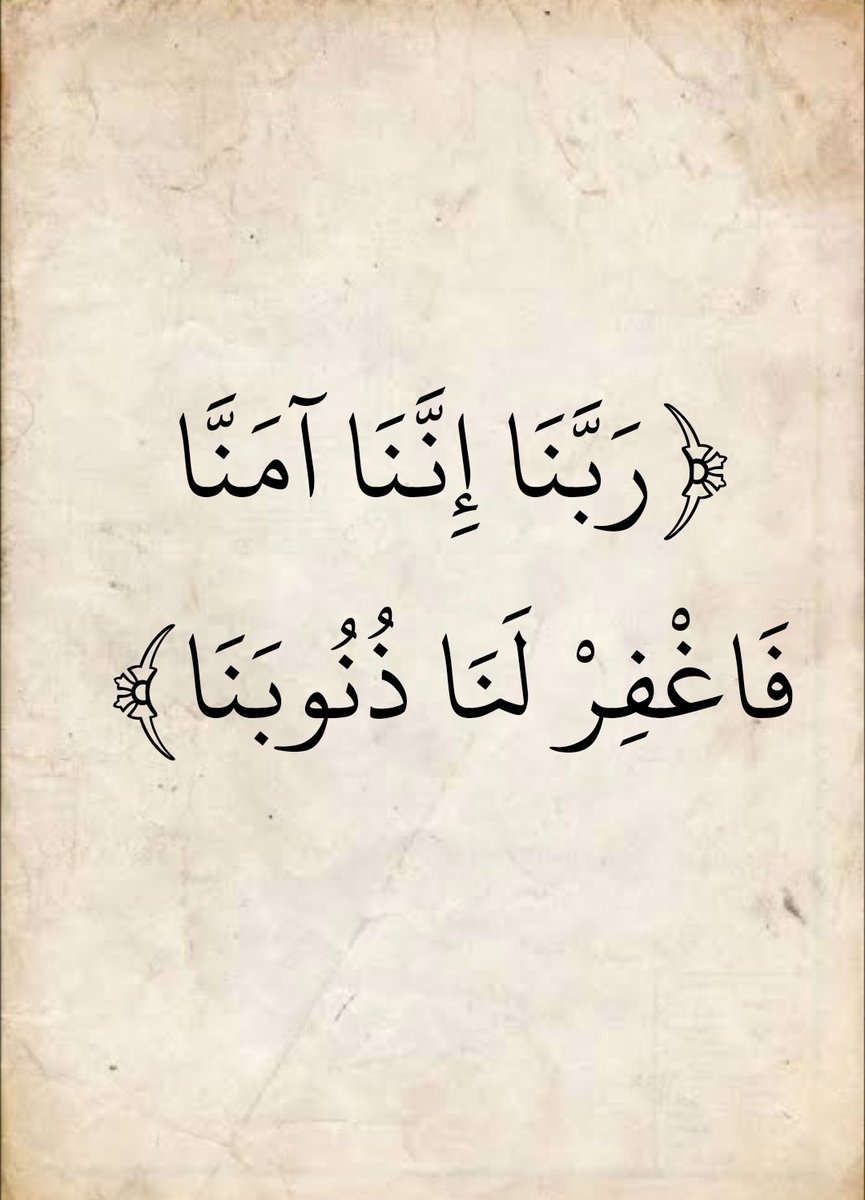 ﴿ رَبَّنَا إِنَّنَا آمَنَّا
فَاغْفِرْ لَنَا ذُنُوبَنَا ﴾